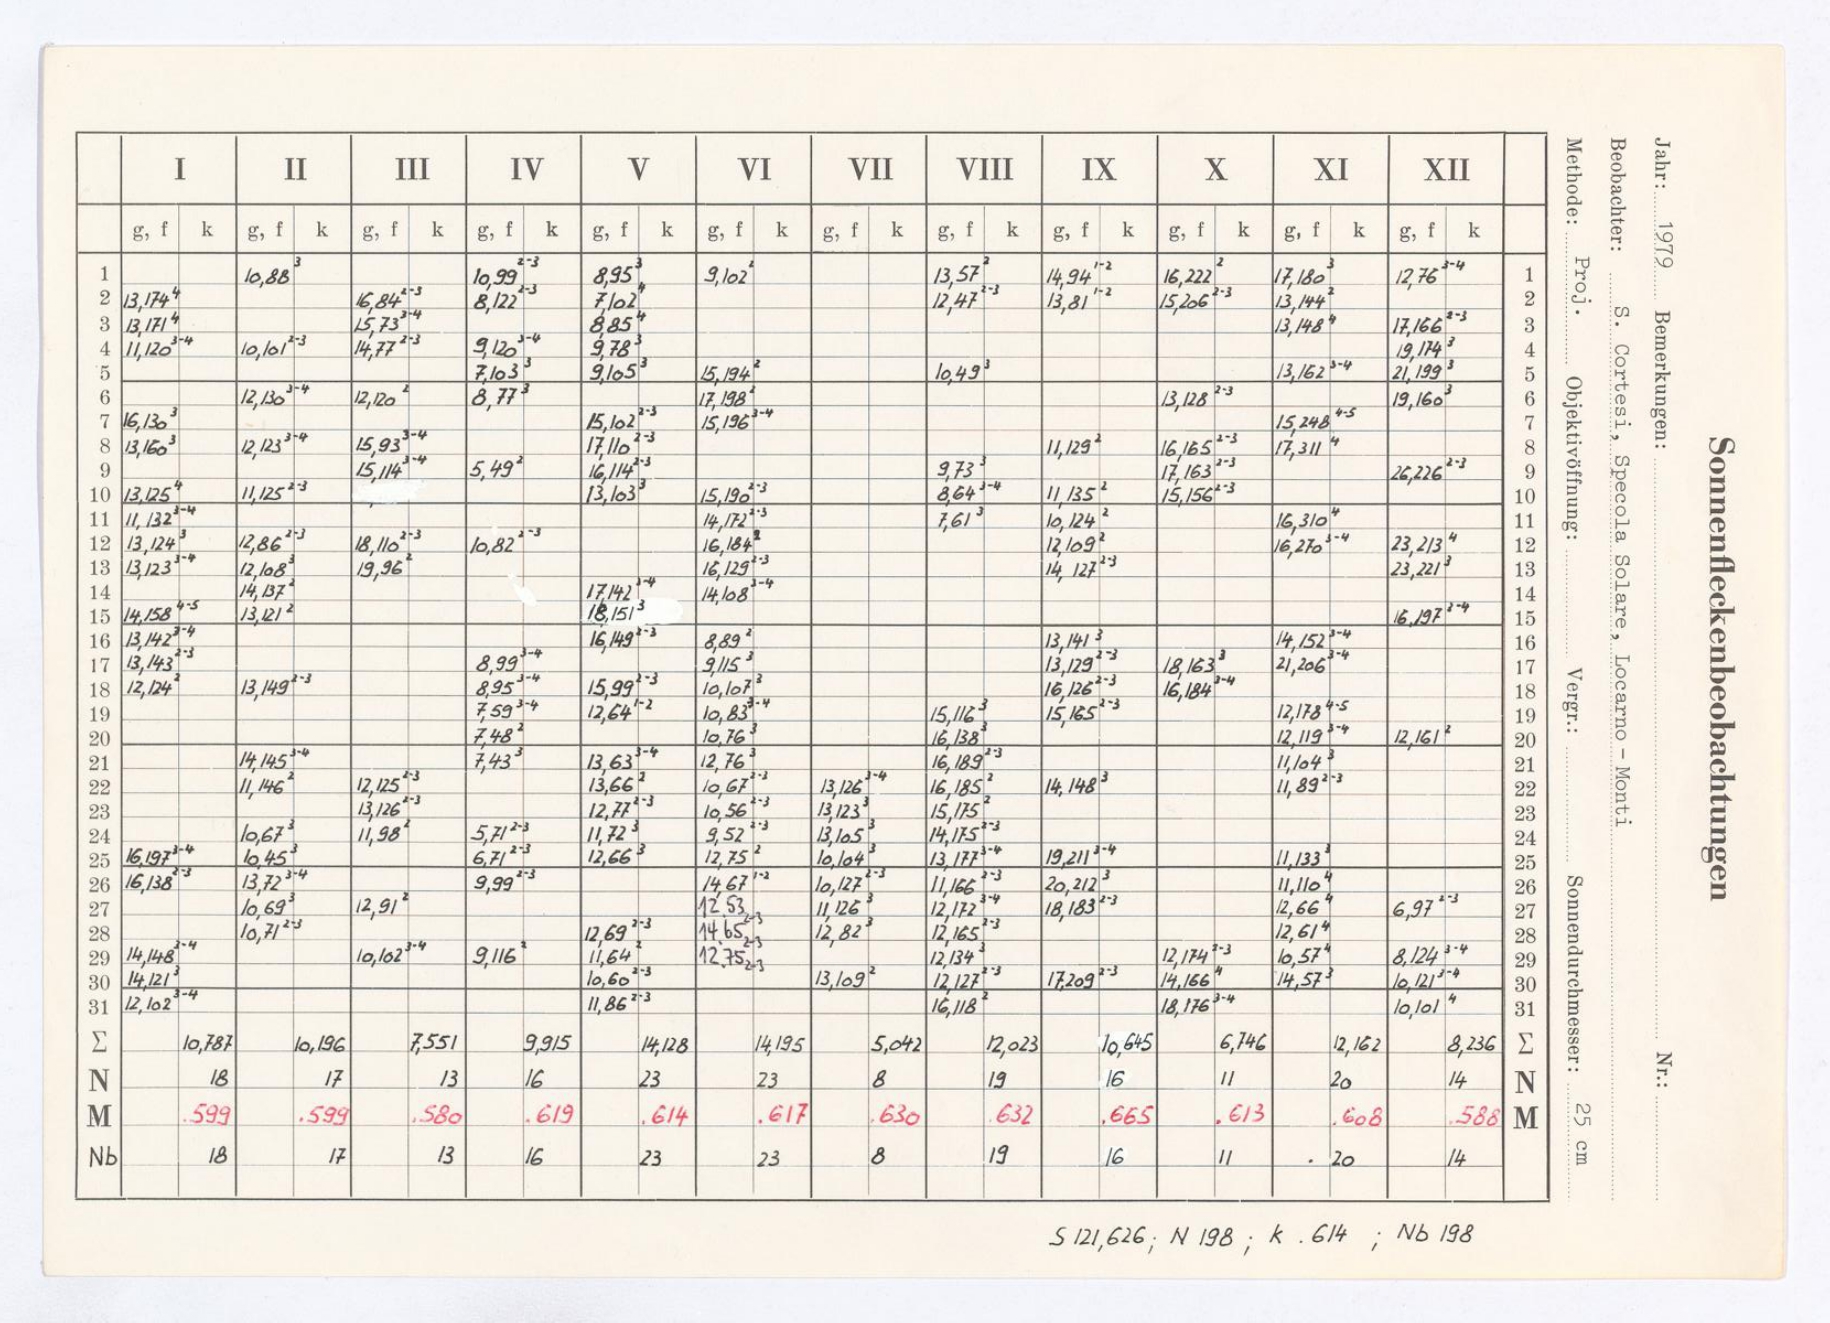 I II III IV V VI VII VIII IX X XI XII
g, f k g, f k g, f k g, f k g, f k g, f k g, f k g, f k g, f k g, f k g, f k g, f k
1 10,88³ 10,99²⁻³ 8,95³ 9,102² 13,57² 14,94¹⁻² 16,222² 17,180³ 12,76³⁻⁴ 1
2 13,174⁴ 16,84²⁻³ 8,122²⁻³ 7,102⁴ 12,47²⁻³ 13,81¹⁻² 15,206²⁻³ 13,144² 2
3 13,171⁴ 15,73³⁻⁴ 8,85⁴ 13,148⁴ 17,166²⁻³ 3
4 11,120³⁻⁴ 10,101²⁻³ 14,77²⁻³ 9,120³⁻⁴ 9,78³ 19,174³ 4
5 7,103³ 9,105³ 15,194² 10,49³ 13,162³⁻⁴ 21,199³ 5
6 12,130³⁻⁴ 12,120² 8,77³ 17,198² 13,128²⁻³ 19,160³ 6
7 16,130³ 15,102²⁻³ 15,196³⁻⁴ 15,248⁴⁻⁵ 7
8 13,160³ 12,123³⁻⁴ 15,93³⁻⁴ 17,110²⁻³ 11,129² 16,165²⁻³ 17,311⁴ 8
9 15,114³⁻⁴ 5,49² 16,114²⁻³ 9,73³ 17,163²⁻³ 26,226²⁻³ 9
10 13,125⁴ 11,125²⁻³ 13,103³ 15,190²⁻³ 8,64³⁻⁴ 11,135² 15,156²⁻³ 10
11 11,132³⁻⁴ 14,172²⁻³ 7,61³ 10,124² 16,310⁴ 11
12 13,124³ 12,86²⁻³ 18,110²⁻³ 10,82²⁻³ 16,184² 12,109² 16,270³⁻⁴ 23,213⁴ 12
13 13,123³⁻⁴ 12,108³ 19,96² 16,129²⁻³ 14,127²⁻³ 23,221³ 13
14 14,137² 17,142³⁻⁴ 14,108³⁻⁴ 14
15 14,158⁴⁻⁵ 13,121² 18,151³ 16,197³⁻⁴ 15
16 13,142³⁻⁴ 16,149²⁻³ 8,89² 13,141³ 14,152³⁻⁴ 16
17 13,143²⁻³ 8,99³⁻⁴ 9,115³ 13,129²⁻³ 18,163³ 21,206³⁻⁴ 17
18 12,124² 13,149²⁻³ 8,95³⁻⁴ 15,99²⁻³ 10,107³ 16,126²⁻³ 16,184³⁻⁴ 18
19 7,59³⁻⁴ 12,64¹⁻² 10,83³⁻⁴ 15,116³ 15,165²⁻³ 12,178⁴⁻⁵ 19
20 7,48² 10,76³ 16,138³ 12,119³⁻⁴ 12,161² 20
21 14,145³⁻⁴ 7,43³ 13,63³⁻⁴ 12,76³ 16,189²⁻³ 11,104³ 21
22 11,146² 12,125²⁻³ 13,66² 10,67²⁻³ 13,126³⁻⁴ 16,185² 14,148³ 11,89²⁻³ 22
23 13,126²⁻³ 12,77²⁻³ 10,56²⁻³ 13,123³ 15,175² 23
24 10,67³ 11,98² 5,71²⁻³ 11,72³ 9,52²⁻³ 13,105³ 14,175²⁻³ 24
25 16,197³⁻⁴ 10,45³ 6,71²⁻³ 12,66³ 12,75² 10,104³ 13,177³⁻⁴ 19,211³⁻⁴ 11,133³ 25
26 16,138²⁻³ 13,72³⁻⁴ 9,99²⁻³ 14,67¹⁻² 10,127²⁻³ 11,166²⁻³ 20,212³ 11,110⁴ 26
27 10,69³ 12,91² 12,53 2-3 11,126³ 12,172³⁻⁴ 18,183²⁻³ 12,66⁴ 6,97²⁻³ 27
28 10,71²⁻³ 12,69²⁻³ 14,65 2-3 12,82³ 12,165²⁻³ 12,61⁴ 28
29 14,148³⁻⁴ 10,102³⁻⁴ 9,116² 11,64² 12,75 2-3 12,134³ 12,174²⁻³ 10,57⁴ 8,124³⁻⁴ 29
30 14,121³ 10,60²⁻³ 13,109² 12,127²⁻³ 17,209²⁻³ 14,166⁴ 14,57³ 10,121³⁻⁴ 30
31 12,102³⁻⁴ 11,86²⁻³ 16,118² 18,176³⁻⁴ 10,101⁴ 31
Σ 10,787 10,196 7,551 9,915 14,128 14,195 5,042 12,023 10,645 6,746 12,162 8,236 Σ
N 18 17 13 16 23 23 8 19 16 11 20 14 N
M .599 .599 .580 .619 .614 .617 .630 .632 .665 .613 .608 .588 M
Nb 18 17 13 16 23 23 8 19 16 11 20 14
S 121,626; N 198; k .614; Nb 198
Sonnenfleckenbeobachtungen
Jahr: 1979 Bemerkungen: Nr.:
Beobachter: S. Cortesi, Specola Solare, Locarno - Monti
Methode: Proj. Objektivöffnung: Vergr.: Sonnendurchmesser: 25 cm